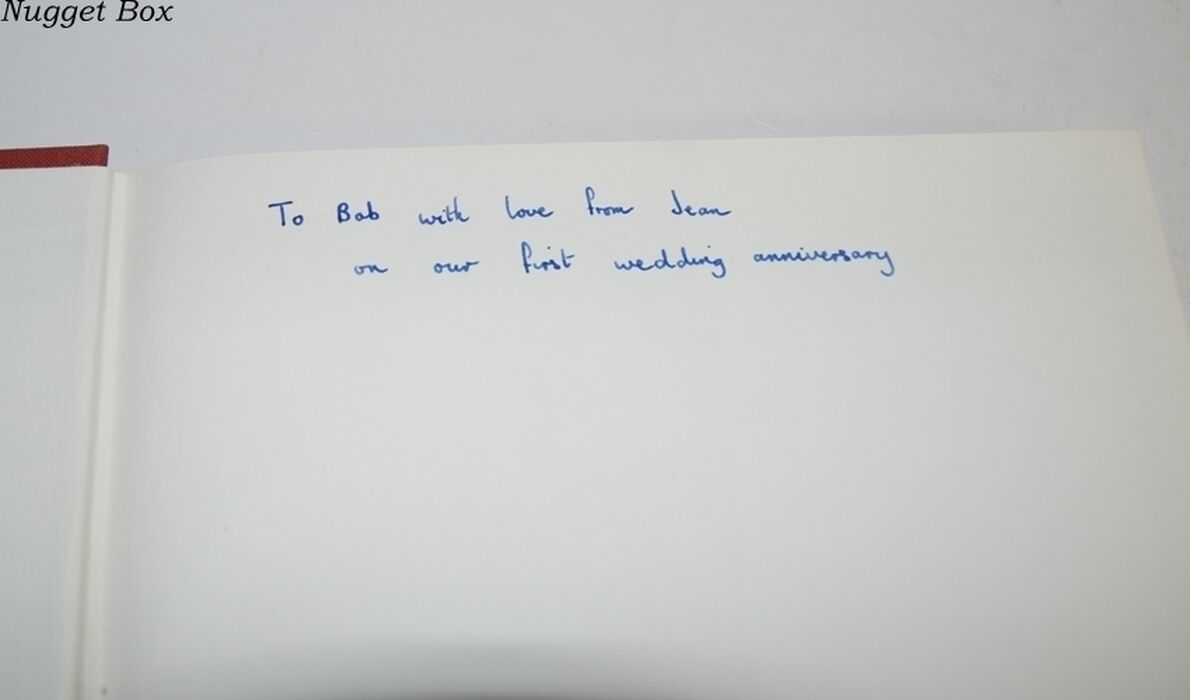 Nugget Box
To Bob with love from Jean
on our first wedding anniversary